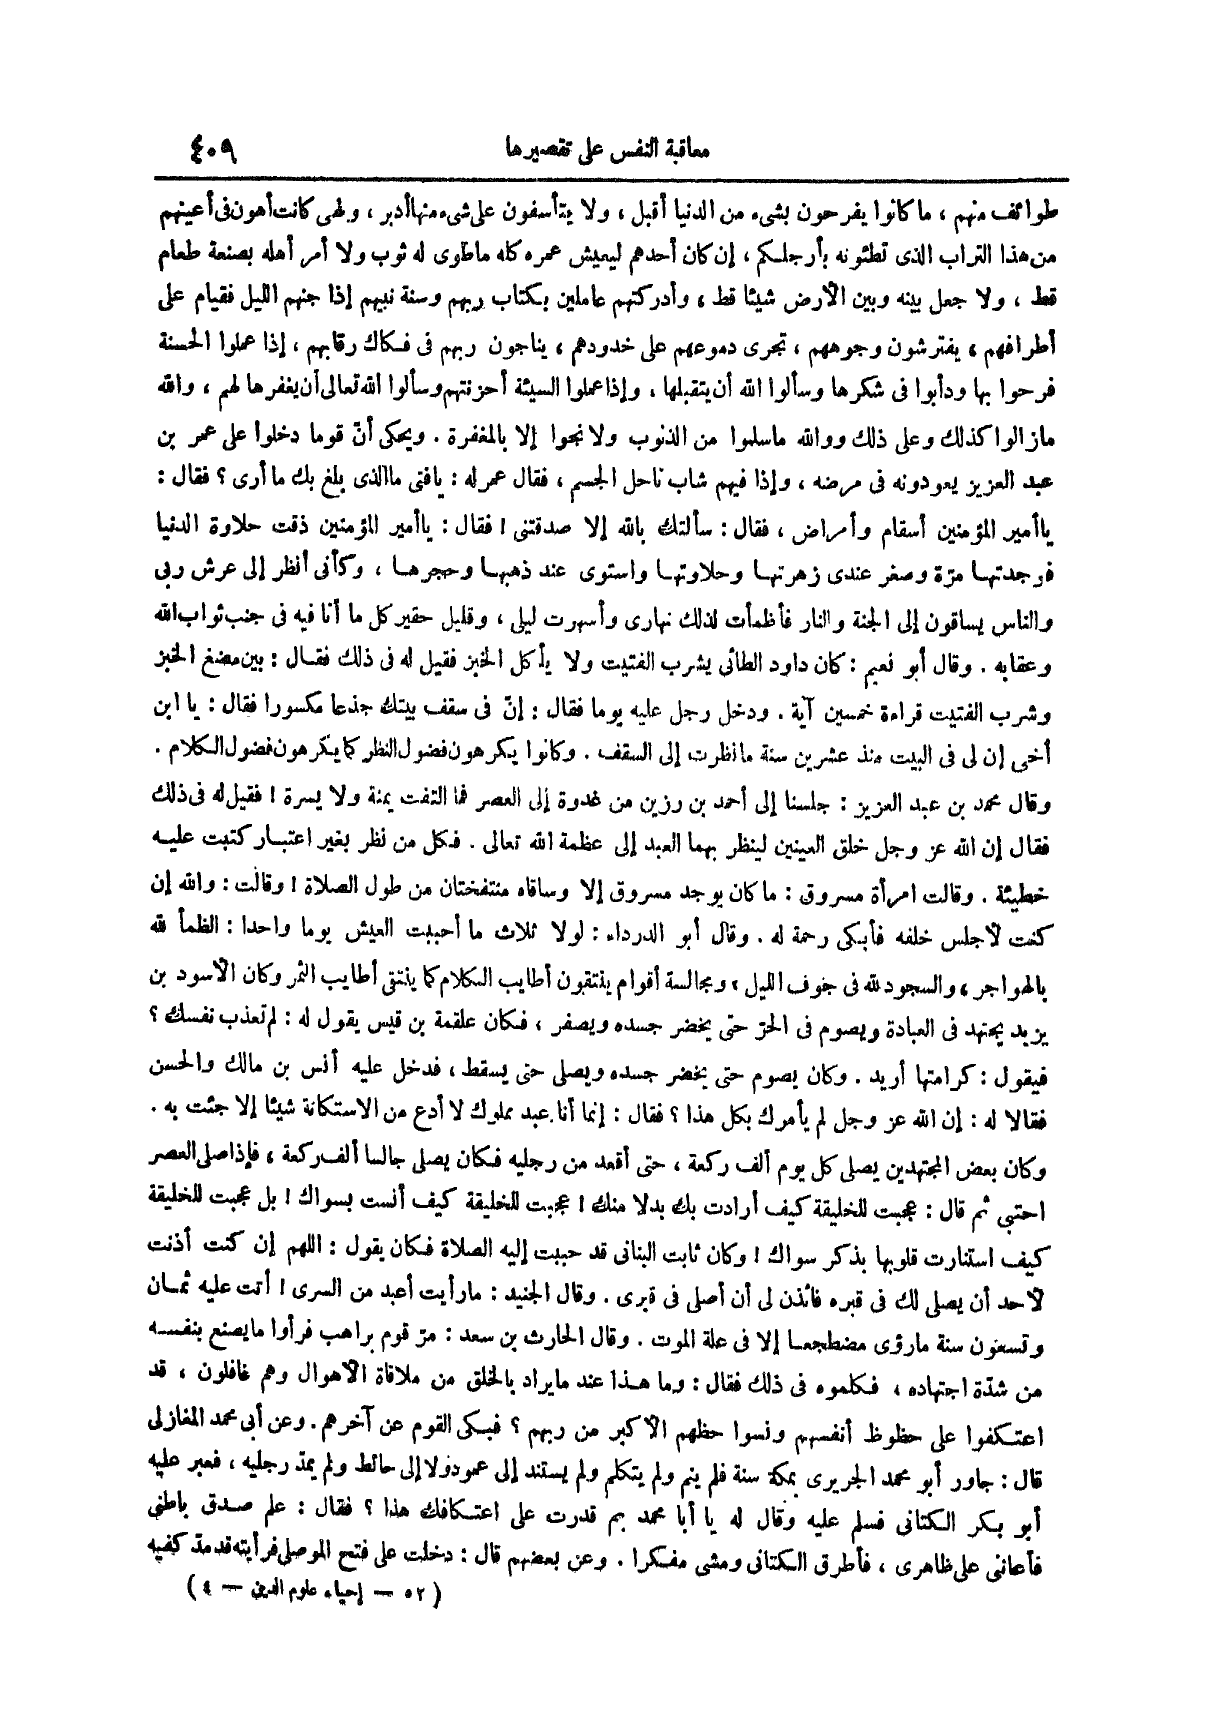 معاقبة النفس على تقصيرها ٤٠٩
طوائف منهم ، ما كانوا يفرحون بشىء من الدنيا أقبل ، ولا يتأسفون على شىء منها أدبر ، ولهى كانت أهون فى أعينهم
من هذا التراب الذى تطئونه بأرجلكم ، إن كان أحدهم ليعيش عمره كله ما طوى له ثوب ولا أمر أهله بصنعة طعام
قط ، ولا جعل بينه وبين الأرض شيئا قط ، وأدركتهم عاملين بكتاب ربهم وسنة نبيهم إذا جنهم الليل فقيام على
أطرافهم ، يفترشون وجوههم ، تجرى دموعهم على خدودهم ، يناجون ربهم فى فكاك رقابهم ، إذا عملوا الحسنة
فرحوا بها ودأبوا فى شكرها وسألوا الله أن يتقبلها ، وإذا عملوا السيئة أحزنتهم وسألوا الله تعالى أن يغفرها لهم ، والله
مازالوا كذلك وعلى ذلك ووالله ماسلموا من الذنوب ولا نجوا إلا بالمغفرة . ويحكى أنّ قوما دخلوا على عمر بن
عبد العزيز يعودونه فى مرضه ، وإذا فيهم شاب ناحل الجسم ، فقال عمر له : يافتى ماالذى بلغ بك ما أرى ؟ فقال :
ياأمير المؤمنين أسقام وأمراض ، فقال : سألتك بالله إلا صدقتنى ! فقال : ياأمير المؤمنين ذقت حلاوة الدنيا
فوجدتها مرّة وصغر عندى زهرتها وحلاوتها واستوى عند ذهبها وحجرها ، وكأنى أنظر إلى عرش ربى
والناس يساقون إلى الجنة والنار فأظمأت لذلك نهارى وأسهرت ليلى ، وقليل حقير كل ما أنا فيه فى جنب ثواب الله
وعقابه . وقال أبو نعيم : كان داود الطائى يشرب الفتيت ولا يأكل الخبز فقيل له فى ذلك فقال : بين مضغ الخبز
وشرب الفتيت قراءة خمسين آية . ودخل رجل عليه يوما فقال : إنّ فى سقف بيتك جذعا مكسورا فقال : يا ابن
أخى إن لى فى البيت منذ عشرين سنة مانظرت إلى السقف . وكانوا يكرهون فضول النظر كما يكرهون فضول الكلام .
وقال محمد بن عبد العزيز : جلسنا إلى أحمد بن رزين من غدوة إلى العصر فما التفت يمنة ولا يسرة ! فقيل له فى ذلك
فقال إن الله عز وجل خلق العينين لينظر بهما العبد إلى عظمة الله تعالى . فكل من نظر بغير اعتبار كتبت عليه
خطيئة . وقالت امرأة مسروق : ما كان يوجد مسروق إلا وساقاه منتفختان من طول الصلاة ! وقالت : والله إن
كنت لأجلس خلفه فأبكى رحمة له . وقال أبو الدرداء : لولا ثلاث ما أحببت العيش يوما واحدا : الظمأ لله
بالهواجر ، والسجود لله فى جوف الليل ، ومجالسة أقوام ينتقون أطايب الكلام كما ينتقى أطايب الثمر وكان الأسود بن
يزيد يجتهد فى العبادة ويصوم فى الحرّ حتى يخضر جسده ويصفر ، فكان علقمة بن قيس يقول له : لم تعذب نفسك ؟
فيقول : كرامتها أريد . وكان يصوم حتى يخضر جسده ويصلى حتى يسقط ، فدخل عليه أنس بن مالك والحسن
فقالا له : إن الله عز وجل لم يأمرك بكل هذا ؟ فقال : إنما أنا عبد مملوك لا أدع من الاستكانة شيئا إلا جئت به .
وكان بعض المجتهدين يصلى كل يوم ألف ركعة ، حتى أقعد من رجليه فكان يصلى جالسا ألف ركعة ، فإذا صلى العصر
احتبى ثم قال : عجبت للخليقة كيف أرادت بك بدلا منك ! عجبت للخليقة كيف أنست بسواك ! بل عجبت للخليقة
كيف استنارت قلوبها بذكر سواك ! وكان ثابت البنانى قد حببت إليه الصلاة فكان يقول : اللهم إن كنت أذنت
لأحد أن يصلى لك فى قبره فائذن لى أن أصلى فى قبرى . وقال الجنيد : مارأيت أعبد من السرى ! أتت عليه ثمان
وتسعون سنة مارؤى مضطجعا إلا فى علة الموت . وقال الحارث بن سعد : مرّ قوم براهب فرأوا مايصنع بنفسه
من شدّة اجتهاده ، فكلموه فى ذلك فقال : وما هذا عند مايراد بالخلق من ملاقاة الأهوال وهم غافلون ، قد
اعتكفوا على حظوظ أنفسهم ونسوا حظهم الأكبر من ربهم ؟ فبكى القوم عن آخرهم . وعن أبى محمد المغازلى
قال : جاور أبو محمد الجريرى بمكة سنة فلم ينم ولم يتكلم ولم يستند إلى عمود ولا إلى حائط ولم يمدّ رجليه ، فعبر عليه
أبو بكر الكتانى فسلم عليه وقال له يا أبا محمد بم قدرت على اعتكافك هذا ؟ فقال : علم صدق باطنى
فأعاننى على ظاهرى ، فأطرق الكتانى ومشى مفكرا . وعن بعضهم قال : دخلت على فتح الموصلى فرأيته قد مدّ كفيه
( ٥٢ — إحياء علوم الدين — ٤ )